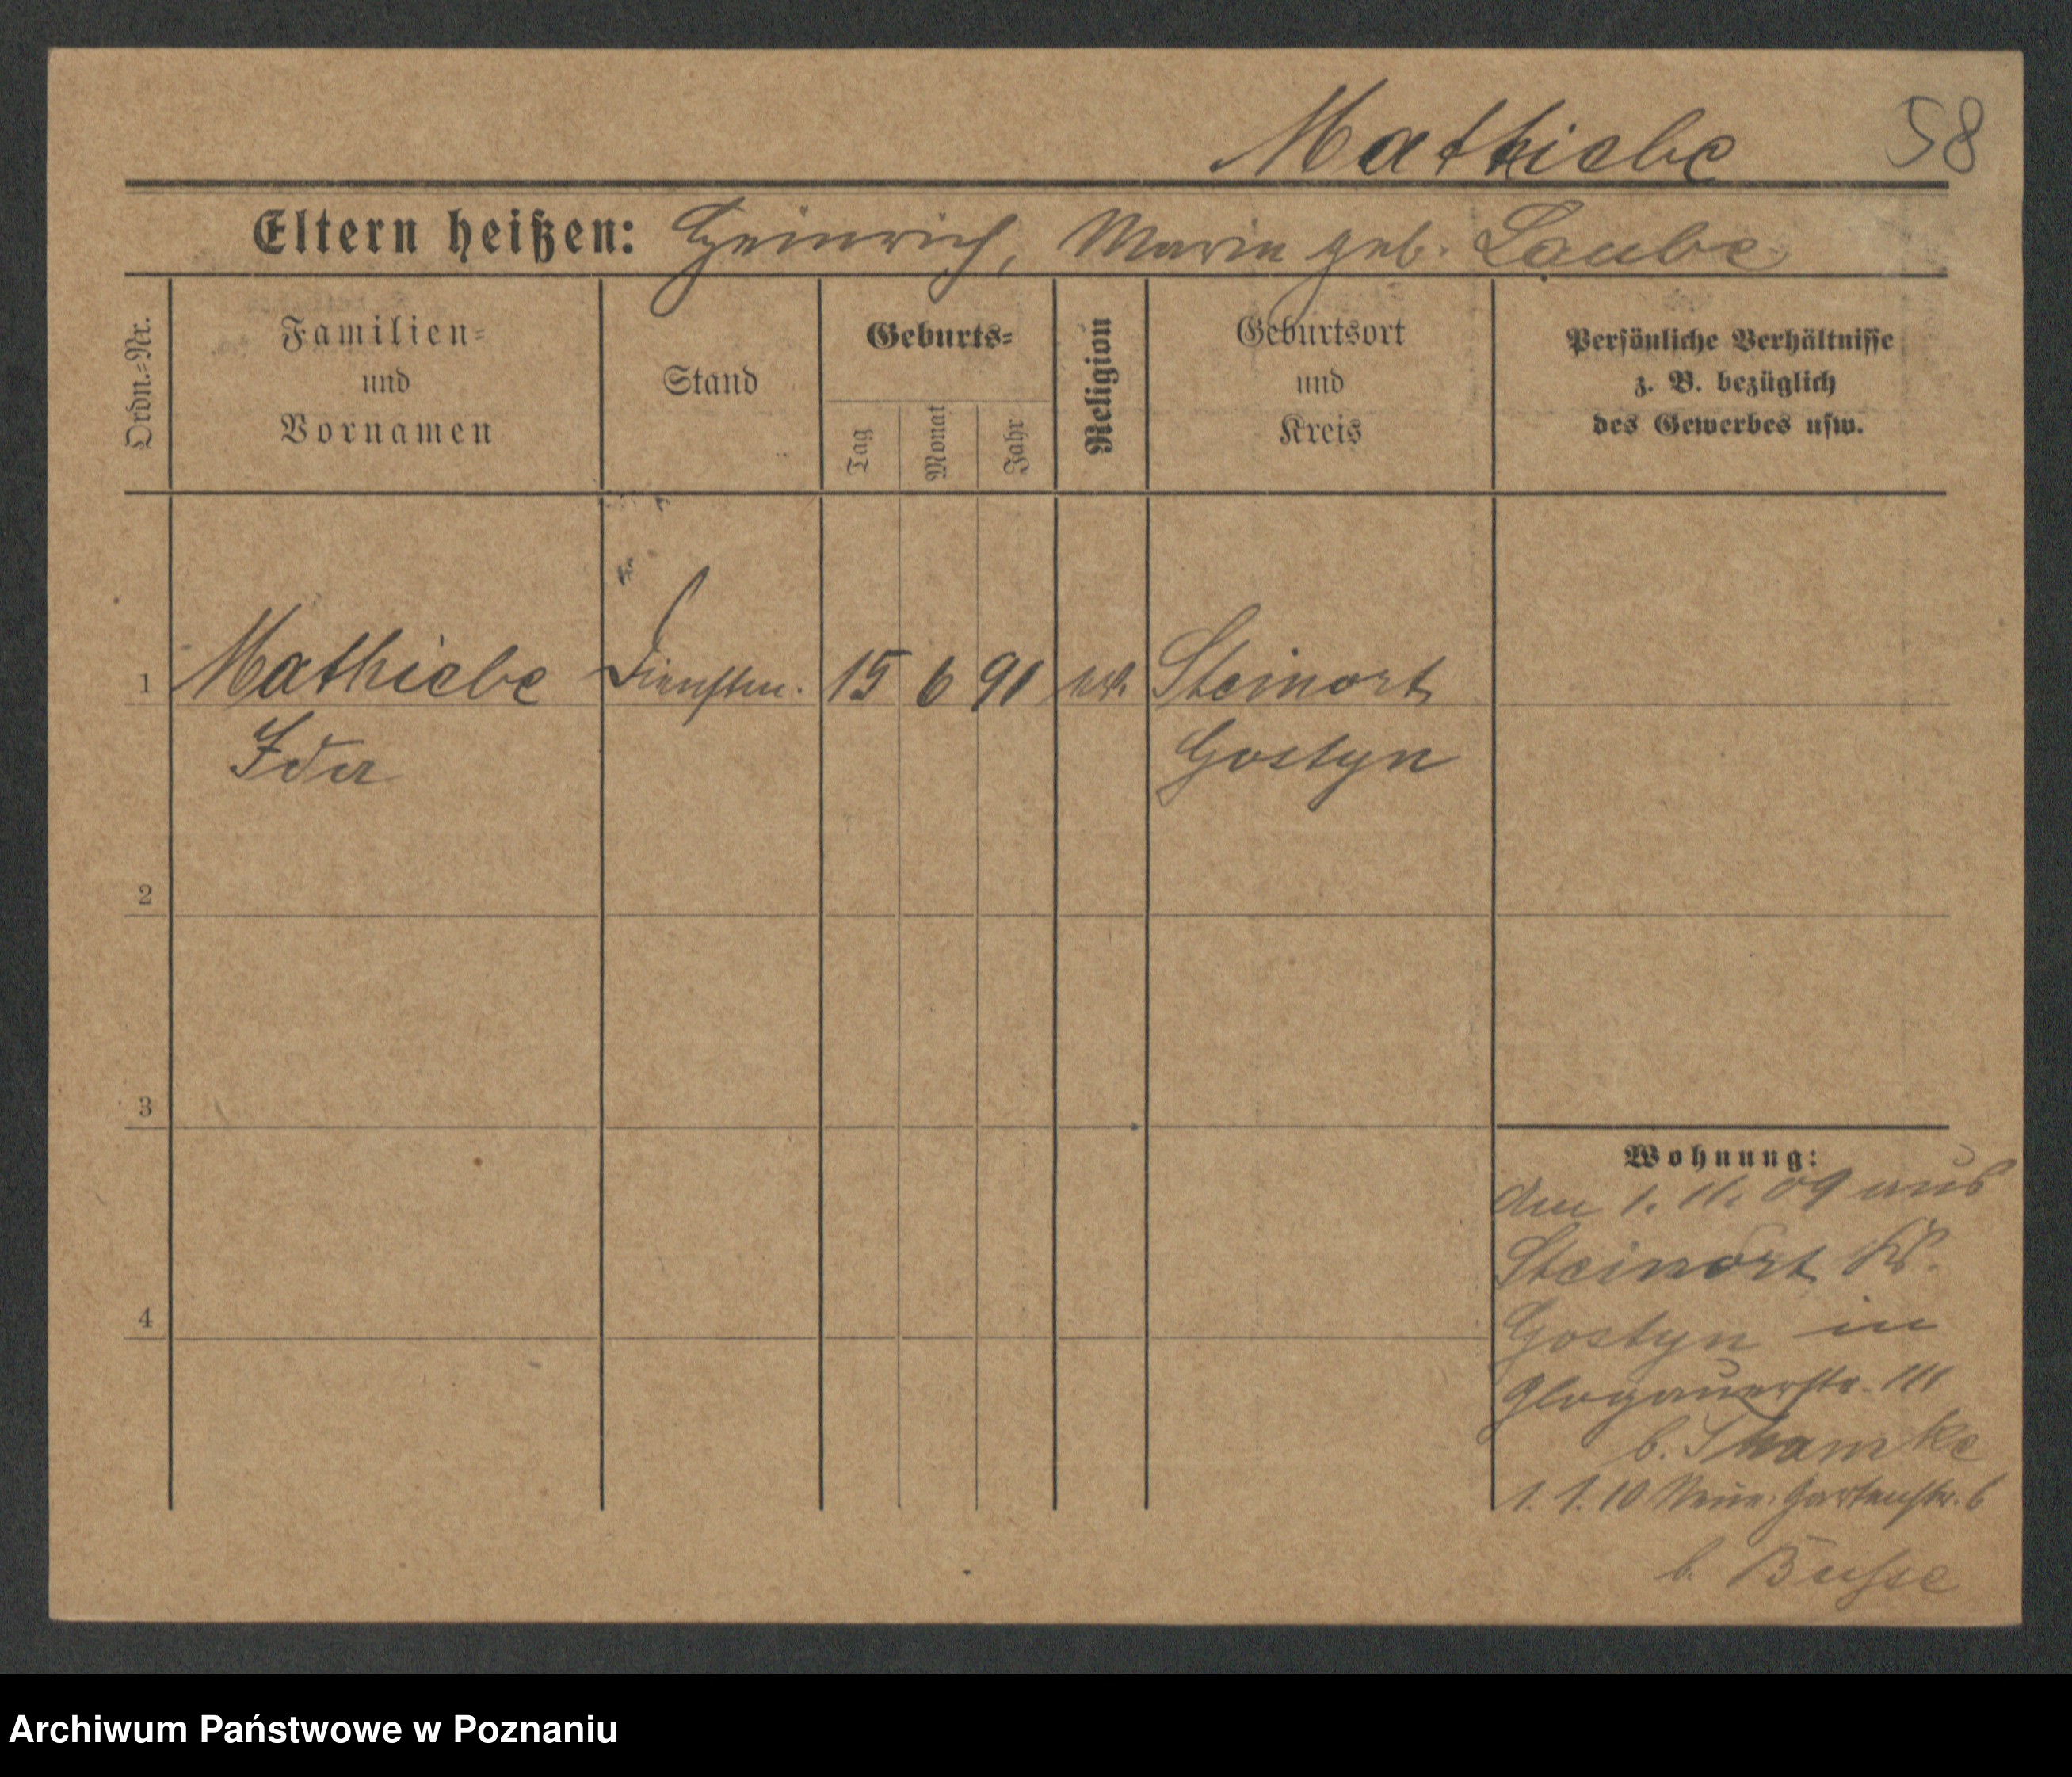 Mathiebe 58
Eltern heißen: Heinrich, Marie geb. Laube
Ordn.-Nr.
Familien-
und
Vornamen
Stand
Geburts-
Tag
Monat
Jahr
Religion
Geburtsort
und
Kreis
Persönliche Verhältnisse
z. B. bezüglich
des Gewerbes usw.
1 Mathiebe Dienstm. 15 6 91 Steinort
Ida Gostyn
2
3
4
Wohnung:
Am 1. 11. 09 aus
Steinort Kr.
Gostyn in
Glogauerstr. 111
b.
1. 1. 10 Neue Gartenstr. 6
b. Busse
Archiwum Państwowe w Poznaniu